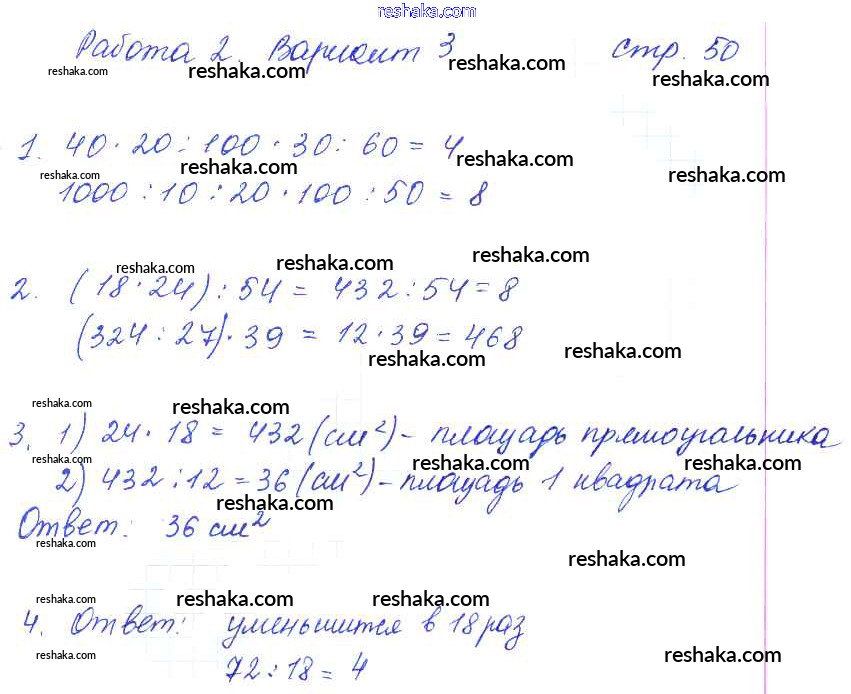 reshaka.com
Работа 2. Вариант 3 стр. 50
reshaka.com reshaka.com reshaka.com reshaka.com
1. 40 · 20 : 100 · 30 : 60 = 4
reshaka.com reshaka.com reshaka.com reshaka.com
1000 : 10 : 20 · 100 : 50 = 8
reshaka.com reshaka.com reshaka.com
2. (18 · 24) : 54 = 432 : 54 = 8
(324 : 27) · 39 = 12 · 39 = 468
reshaka.com reshaka.com
reshaka.com reshaka.com
3. 1) 24 · 18 = 432 (см²) - площадь прямоугольника
reshaka.com reshaka.com reshaka.com
2) 432 : 12 = 36 (см²) - площадь 1 квадрата
reshaka.com
Ответ: 36 см²
reshaka.com reshaka.com
reshaka.com reshaka.com reshaka.com
4. Ответ: уменьшится в 18 раз
reshaka.com reshaka.com
72 : 18 = 4